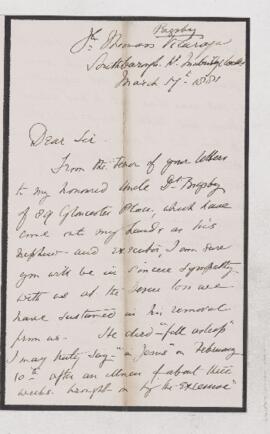 Bagsby
St Thomas Vicarage
Southborough Nr Tunbridge Wells
March 17th 1881
Dear Sir.
From the tenor of your letters
to my honored Uncle Dr Bigsby
of 89 Gloucester Place, which have
come out my hands as his
nephew and executor, I am sure
you will be in sincere sympathy
with us at the loss we
have sustained in his removal
from us. He died "fell asleep"
I may truly say "in Jesus" on February
10th after an illness of about three
weeks brought on by the excessive